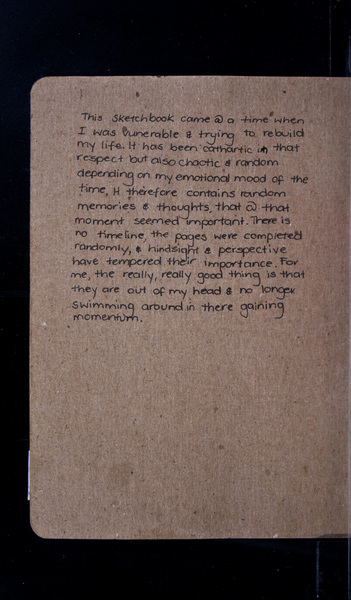 This sketchbook came @ a time when
I was vunerable & trying to rebuild
my life. It has been cathartic in that
respect but also chaotic & random
depending on my emotional mood of the
time, It therefore contains random
memories & thoughts, that @ that
moment seemed important. There is
no timeline, the pages were completed
randomly, & hindsight & perspective
have tempered their importance. For
me, the really, really good thing is that
they are out of my head & no longer
swimming around in there gaining
momentum.